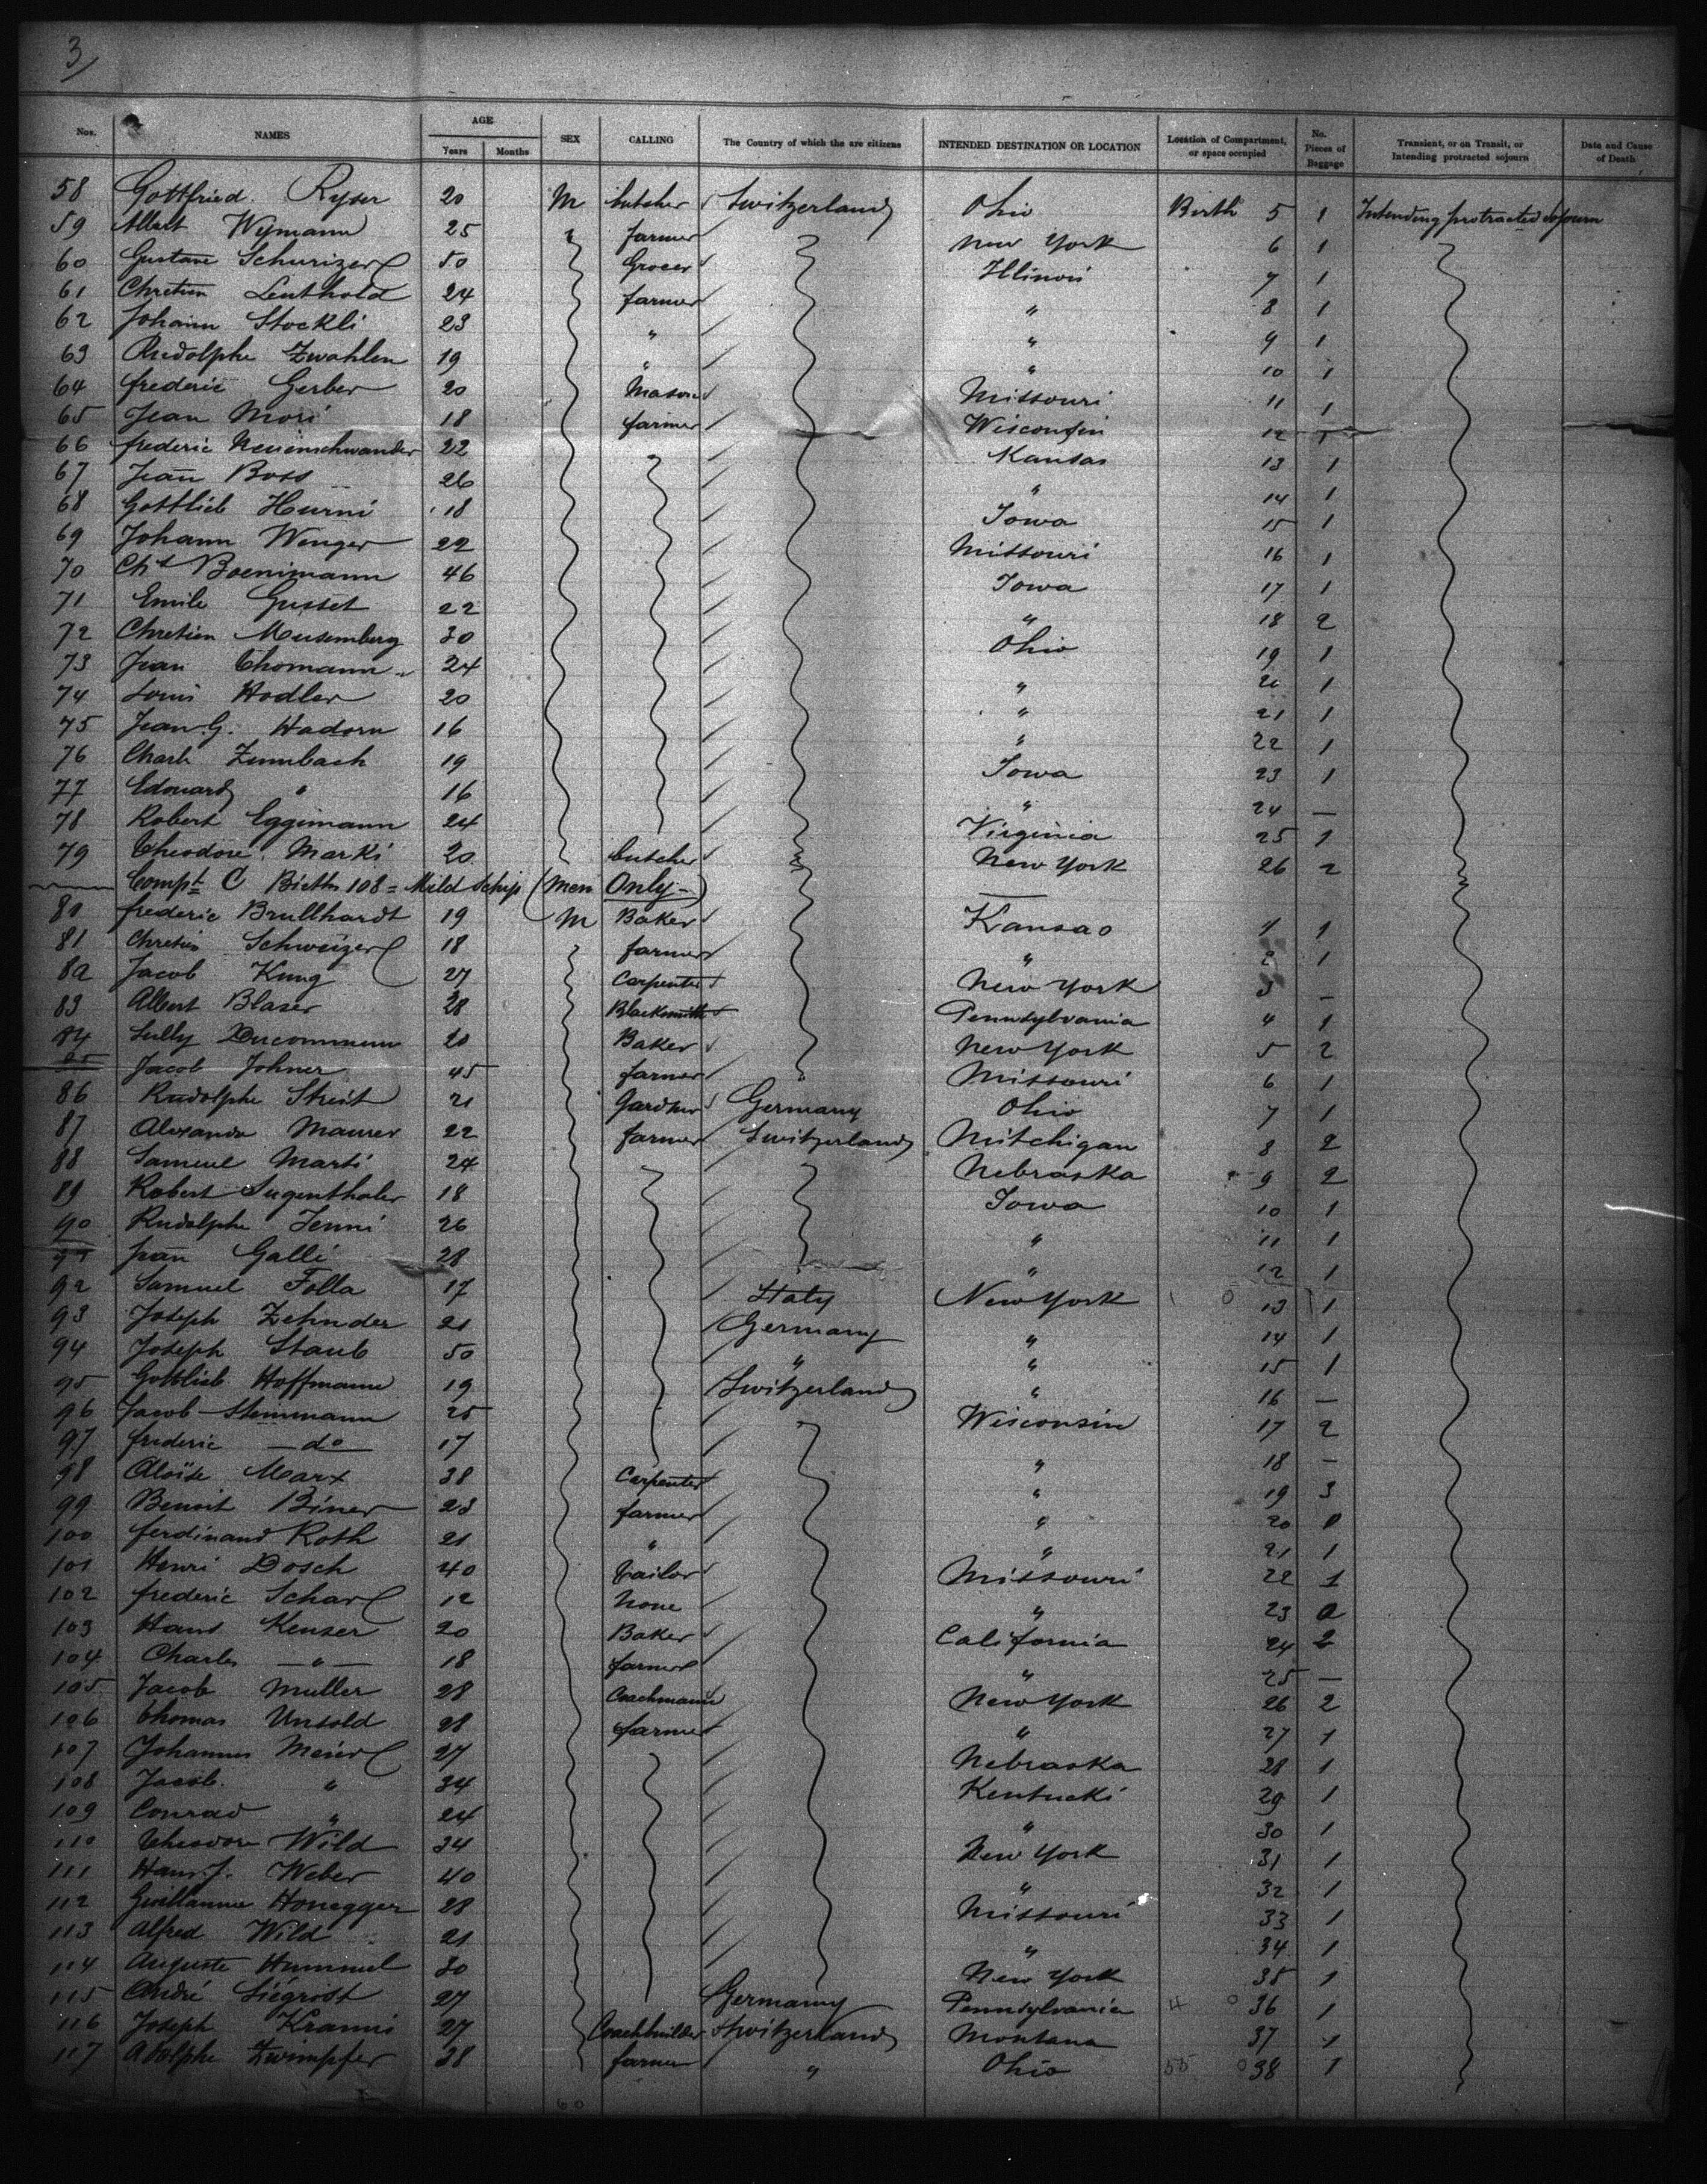 3
Nos. NAMES AGE Years Months SEX CALLING The Country of which the are citizens INTENDED DESTINATION OR LOCATION Location of Compartment, or space occupied No. Pieces of Baggage Transient, or on Transit, or Intending protracted sojourn Date and Cause of Death
58 Gottfried Ryser 20 M butcher Switzerland Ohio Birth 5 1 Intending protracted sojourn
59 Albert Wymann 25 farmer New York 6 1
60 Gustave Schurizer 50 Grocer Illinois 7 1
61 Chretien Leuthold 24 farmer " 8 1
62 Johann Stockli 23 " " 9 1
63 Rudolphe Zwahlen 19 " " 10 1
64 frederic Gerber 20 Mason Missouri 11 1
65 Jean Mori 18 farmer Wisconsin 12 1
66 frederic Neuenschwander 22 Kansas 13 1
67 Jean Boss 26 " 14 1
68 Gottlieb Hurni 18 Iowa 15 1
69 Johann Wenger 22 Missouri 16 1
70 Cht Boenimann 46 Iowa 17 1
71 Emile Gusset 22 " 18 2
72 Chretien Musemberg 30 Ohio 19 1
73 Jean Thomann 24 " 20 1
74 Louis Hodler 20 " 21 1
75 Jean G. Hadorn 16 " 22 1
76 Charle Zumbach 19 Iowa 23 1
77 Edouard " 16 " 24 —
78 Robert Eggimann 24 Virginia 25 1
79 Theodore Marki 20 butcher New York 26 2
Compt C Births 108 = Mild Schip (Men Only -)
80 frederic Brullhardt 19 M Baker Kansas 1 1
81 Chretien Schweizer 18 farmer " 2 1
82 Jacob Kung 27 Carpenter New York 3 —
83 Albert Blaser 28 Blacksmith Pennsylvania 4 1
84 Sully Ducommun 20 Baker New York 5 2
85 Jacob Johner 45 farmer Missouri 6 1
86 Rudolphe Streit 21 Gardner Germany Ohio 7 1
87 Alexandre Maurer 22 farmer Switzerland Mitchigan 8 2
88 Samuel Marti 24 Nebraska 9 2
89 Robert Lugenthaler 18 Iowa 10 1
90 Rudolphe Jenni 26 " 11 1
91 Jean Galli 28 " 12 1
92 Samuel Folla 17 Italy New York 13 1
93 Joseph Zehnder 21 Germany " 14 1
94 Joseph Staub 50 " " 15 1
95 Gottlieb Hoffmann 19 Switzerland " 16 —
96 Jacob Stemmann 25 Wisconsin 17 2
97 frederic —do— 17 " 18 —
98 Aloïse Marx 38 Carpenter " 19 3
99 Benoit Biner 23 farmer " 20 0
100 ferdinand Roth 21 " " 21 1
101 Henri Dosch 40 Tailor Missouri 22 1
102 frederic Schar 12 None " 23 0
103 Hans Kenser 20 Baker California 24 2
104 Charles —"— 18 farmer " 25 —
105 Jacob Muller 28 Coachmann New York 26 2
106 Thomas Unsold 28 farmer " 27 1
107 Johannes Meier 27 Nebraska 28 1
108 Jacob " 34 Kentucki 29 1
109 Conrad " 24 " 30 1
110 Theodore Wild 34 New York 31 1
111 Hans J. Weber 40 " 32 1
112 Guillaume Honegger 28 Missouri 33 1
113 Alfred Wild 21 " 34 1
114 Auguste Hummel 30 New York 35 1
115 André Siégrist 27 Germany Pennsylvania 36 1
116 Joseph Kramis 27 Coachbuilder Switzerland Montana 37 1
117 Adolphe Zwimpfer 38 farmer " Ohio 38 1